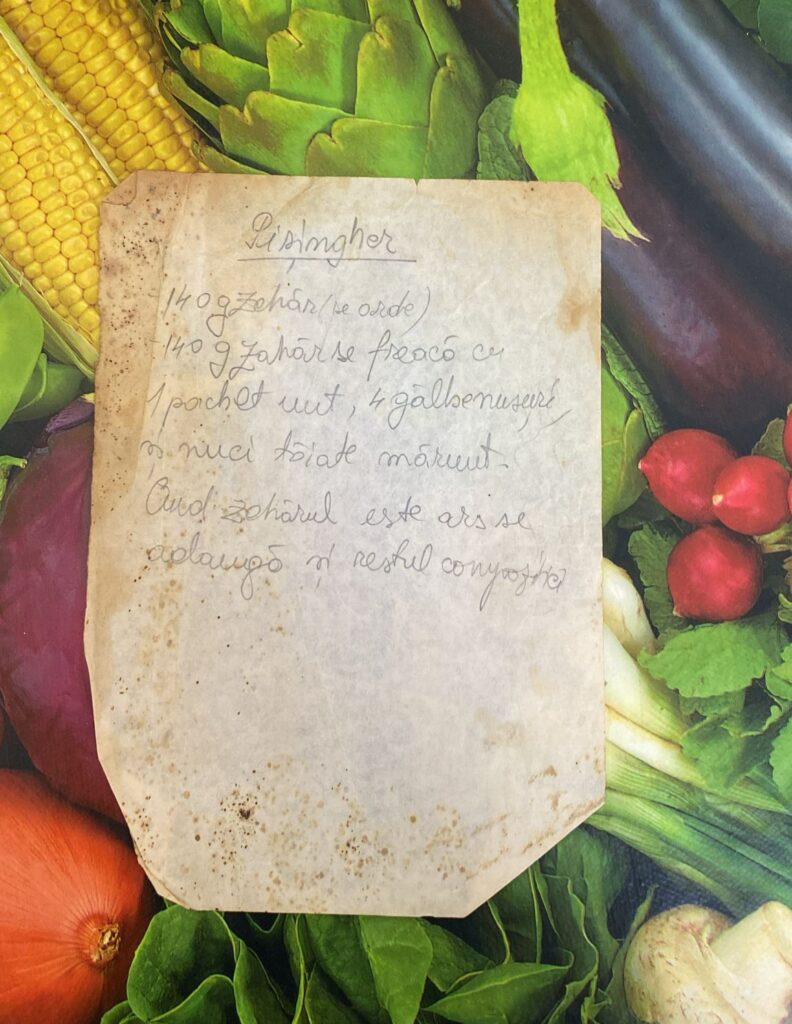 Pișingher
- 140 g zahăr (se arde)
- 140 g zahăr se freacă cu
1 pachet unt, 4 gălbenușuri,
și nuci tăiate mărunt.
Când zahărul este ars se
adaugă și restul compoziției